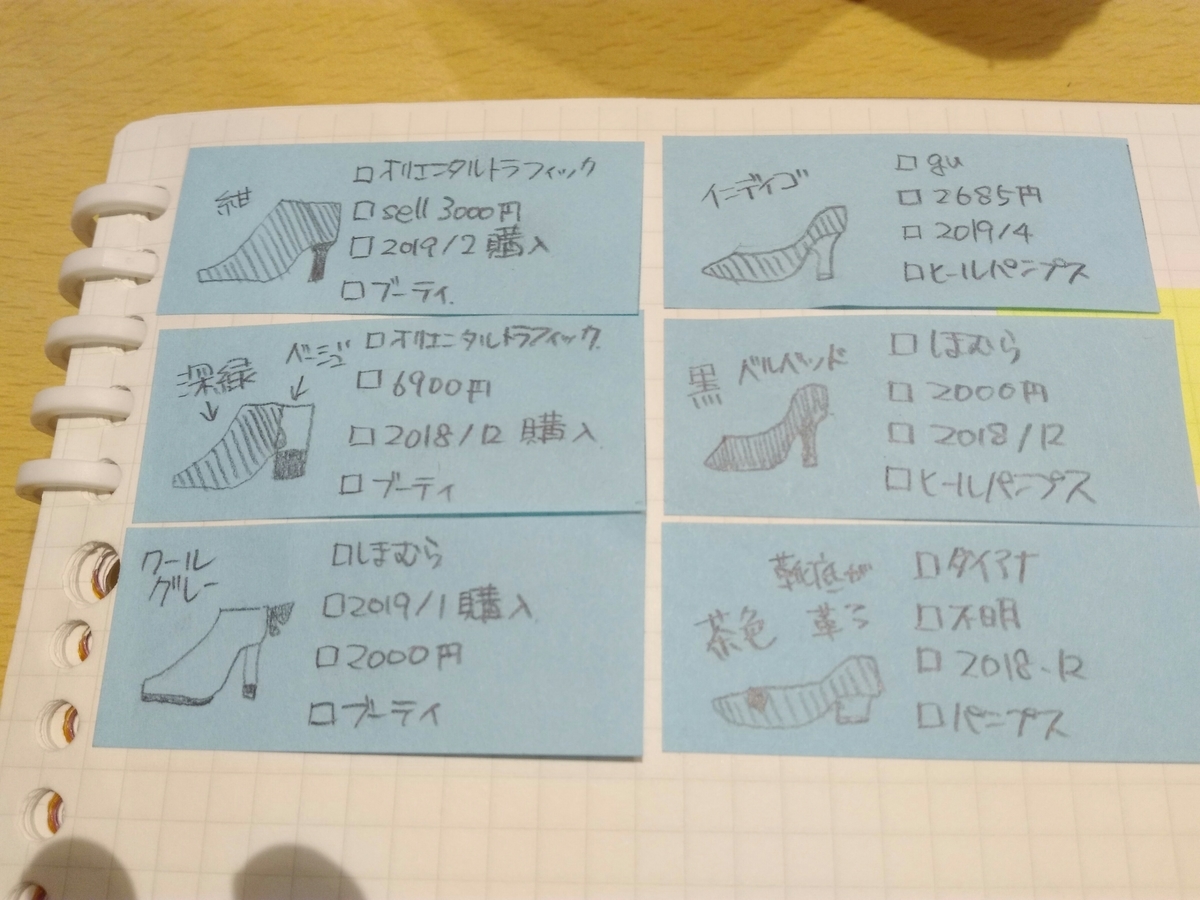 紺
□オリエンタルトラフィック
□sell 3000円
□2019/2 購入
□ブーティ.
インディゴ
□gu
□2685円
□2019/4
□ヒールパンプス
深緑
ベージュ
□オリエンタルトラフィック.
□6900円
□2018/12 購入
□ブーティ
黒 ベルベッド
□しまむら
□2000円
□2018/12
□ヒールパンプス
クール
グレー
□しまむら
□2019/1 購入
□2000円
□ブーティ
靴底が
茶色
□ダイアナ
□不明
□2018.12
□パンプス